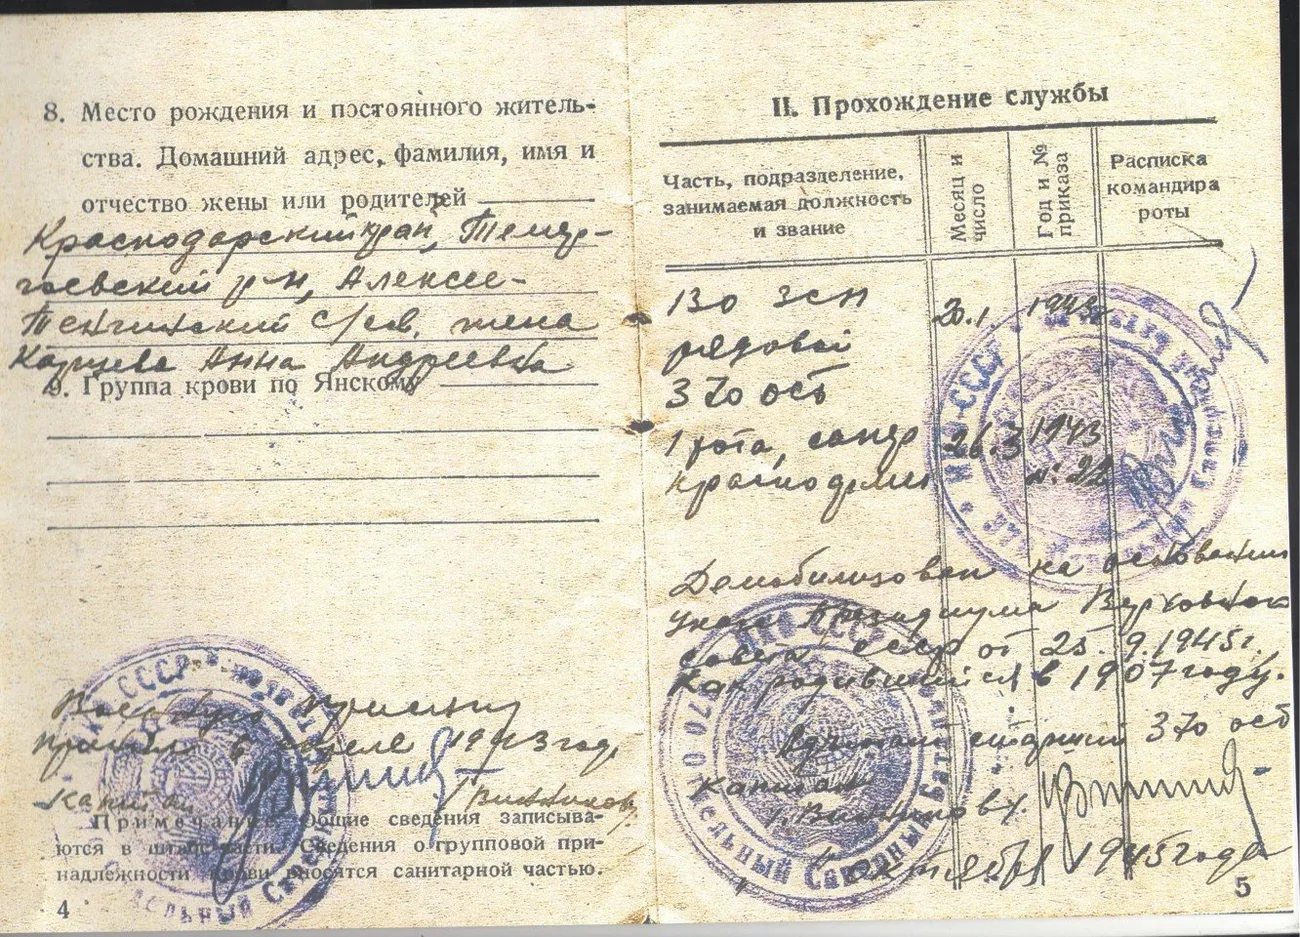 8. Место рождения и постоянного житель-
ства. Домашний адрес, фамилия, имя и
отчество жены или родителей
Краснодарский край, Темир-
гоевский р-н, Алексее-
Тенгинский с/сов. жена
Анна Андреевна
9. Группа крови по Янскому
1943 год.
Капитан
Примечание. Общие сведения записыва-
ются в штабе части. Сведения о групповой при-
надлежности крови вносятся санитарной частью.
4
II. Прохождение службы
Часть, подразделение, занимаемая должность и звание
Месяц и число
Год и № приказа
Расписка командира роты
130 зсп 20.1 1943
рядовой
370 осб
1 рота, сапер 26.3 1943
красноармеец №: 22
Демобилизован на основании
указа Президиума Верховного
совета СССР от 25.9.1945г.
как родившийся в 1907 году.
370 осб
Капитан
октября 1945 года
5
НКО-СССР
НКО-СССР
НКО СССР
370 Отдельный Саперный Батальон